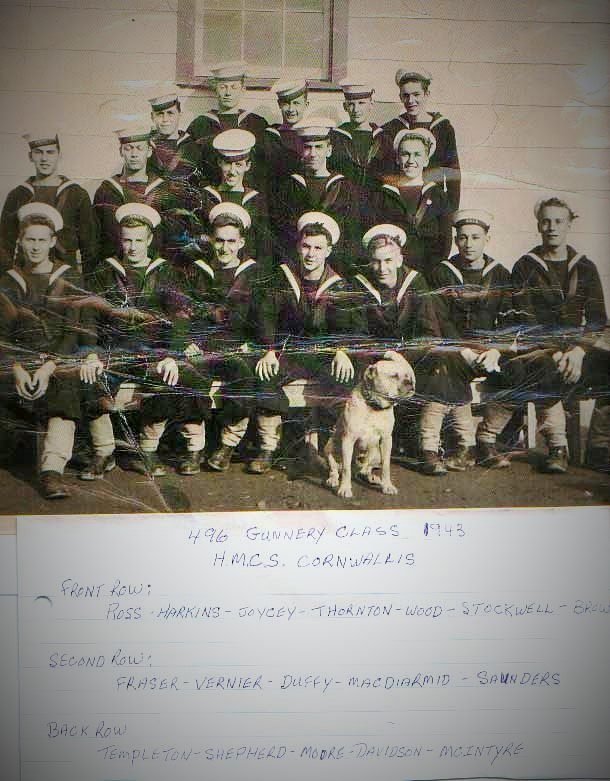 496 GUNNERY CLASS 1943
H.M.C.S. CORNWALLIS
FRONT ROW:
ROSS - HARKINS - JOYCEY - THORNTON - WOOD - STOCKWELL - BROW
SECOND ROW:
FRASER - VERNIER - DUFFY - MACDIARMID - SAUNDERS
BACK ROW
TEMPLETON - SHEPHERD - MOORE - DAVIDSON - MCINTYRE